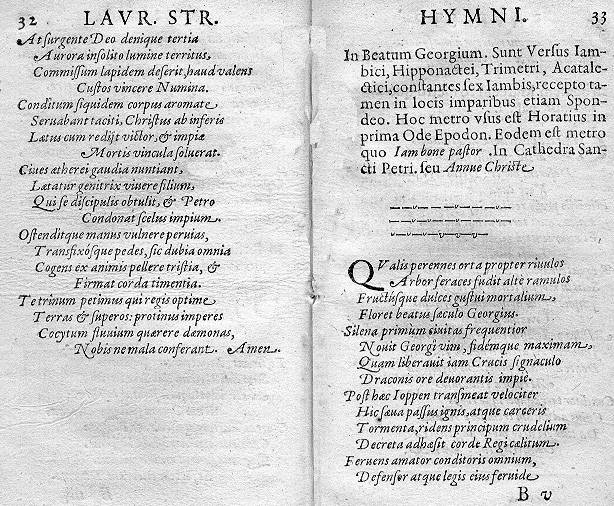 32 LAVR. STR.
At surgente Deo denique tertia
Aurora insolito lumine territus,
Commissum lapidem deserit, haud valens
Custos vincere Numina.
Conditum siquidem corpus aromate
Seruabant taciti, Christus ab inferis
Lætus cum redijt victor, & impiæ
Mortis vincula soluerat.
Ciues ætherei gaudia nuntiant,
Lætatur genitrix viuere filium,
Qui se discipulis obtulit, & Petro
Condonat scelus impium.
Ostenditque manus vulnere peruias,
Transfixósque pedes, sic dubia omnia
Cogens ex animis pellere tristia, &
Firmat corda timentia.
Te trinum petimus qui regis optime
Terras & superos: protinus imperes
Cocytum fluuium quærere dæmonas,
Nobis ne mala conferant. Amen.
HYMNI. 33
In Beatum Georgium. Sunt Versus Iam-
bici, Hipponactei, Trimetri, Acatale-
ctici, constantes sex Iambis, recepto ta-
men in locis imparibus etiam Spon-
deo. Hoc metro vsus est Horatius in
prima Ode Epodon. Eodem est metro
quo Iam bone pastor. In Cathedra San-
cti Petri. seu Annue Christe
QValis perennes orta propter riuulos
Arbor feraces fudit alte ramulos
Fructúsque dulces gustui mortalium,
Floret beatus sæculo Georgius.
Silena primum ciuitas frequentior
Nouit Georgi vim, fidemque maximam,
Quam liberauit iam Crucis signaculo
Draconis ore deuorantis impie.
Post hæc Ioppen transmeat velociter
Hic sæua passus ignis, atque carceris
Tormenta, ridens principum crudelium
Decreta adhæsit corde Regi cælitum.
Feruens amator conditoris omnium,
Defensor atque legis eius feruide
B v